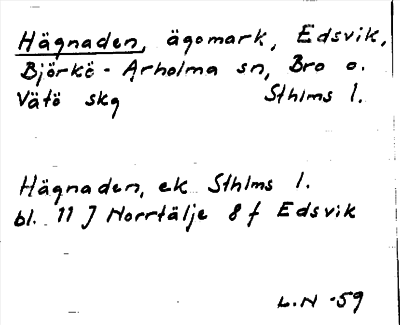 Hägnaden, ägomark, Edsvik,
Björkö - Arholma sn, Bro o.
Vätö skg Sthlms l.
Hägnaden, ek Sthlms l.
bl. 11 J Norrtälje 8 f Edsvik
L.N -59